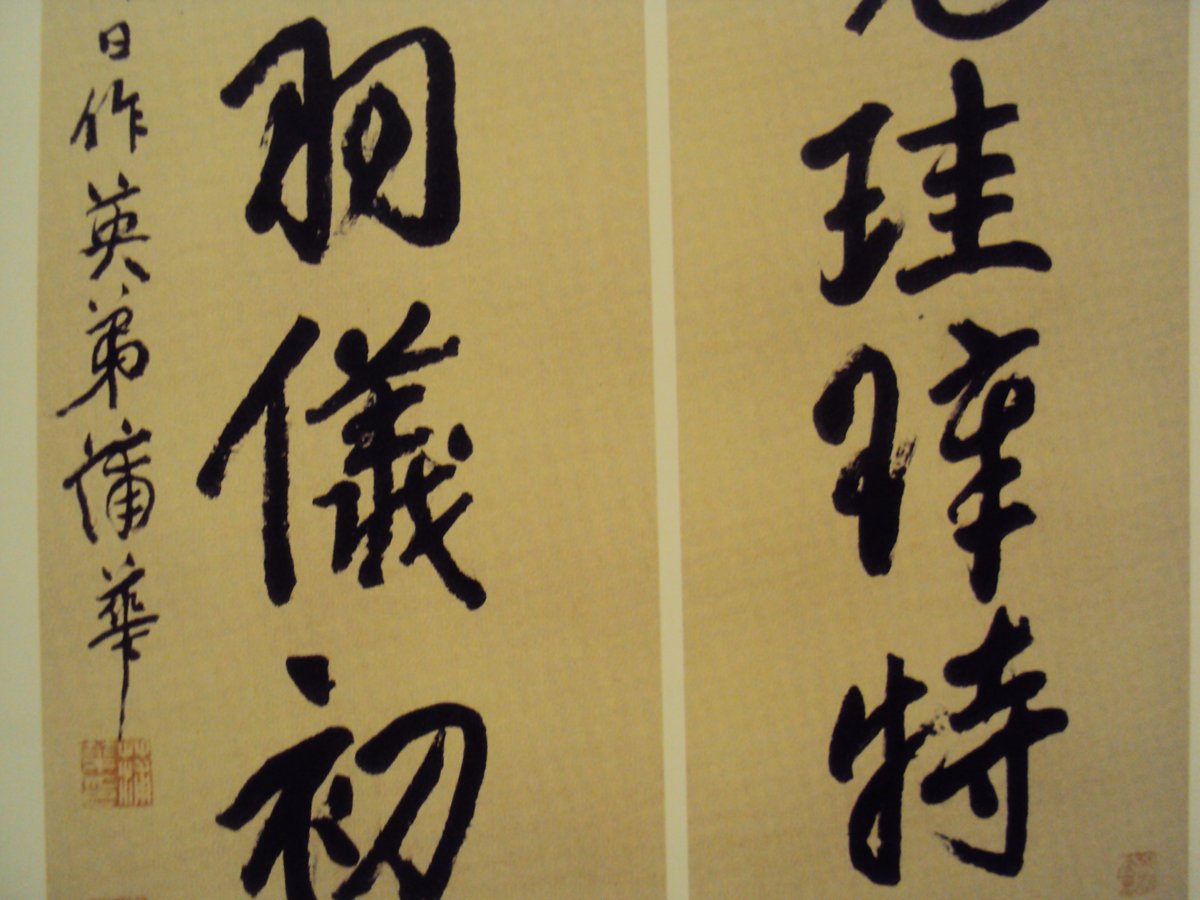 珪璋特
羽儀初
日作英弟蒲華